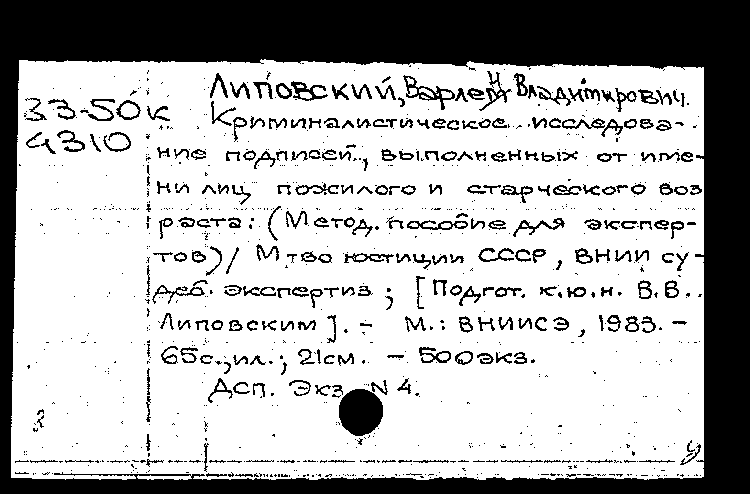 Липовский, Варлен Владимирович.
33-50к
4310
Криминалистическое исследова-
ние подписей, выполненных от име-
ни лиц пожилого и старческого воз
раста: (Метод. пособие для экспер-
тов) / М-тво юстиции СССР, ВНИИ су-
деб. экспертиз; [Подгот. к.ю.н. В.В.
Липовским]. - М.: ВНИИСЭ, 1983. -
65с., ил.; 21см. - 500экз.
Дсп. Экз. N 4.